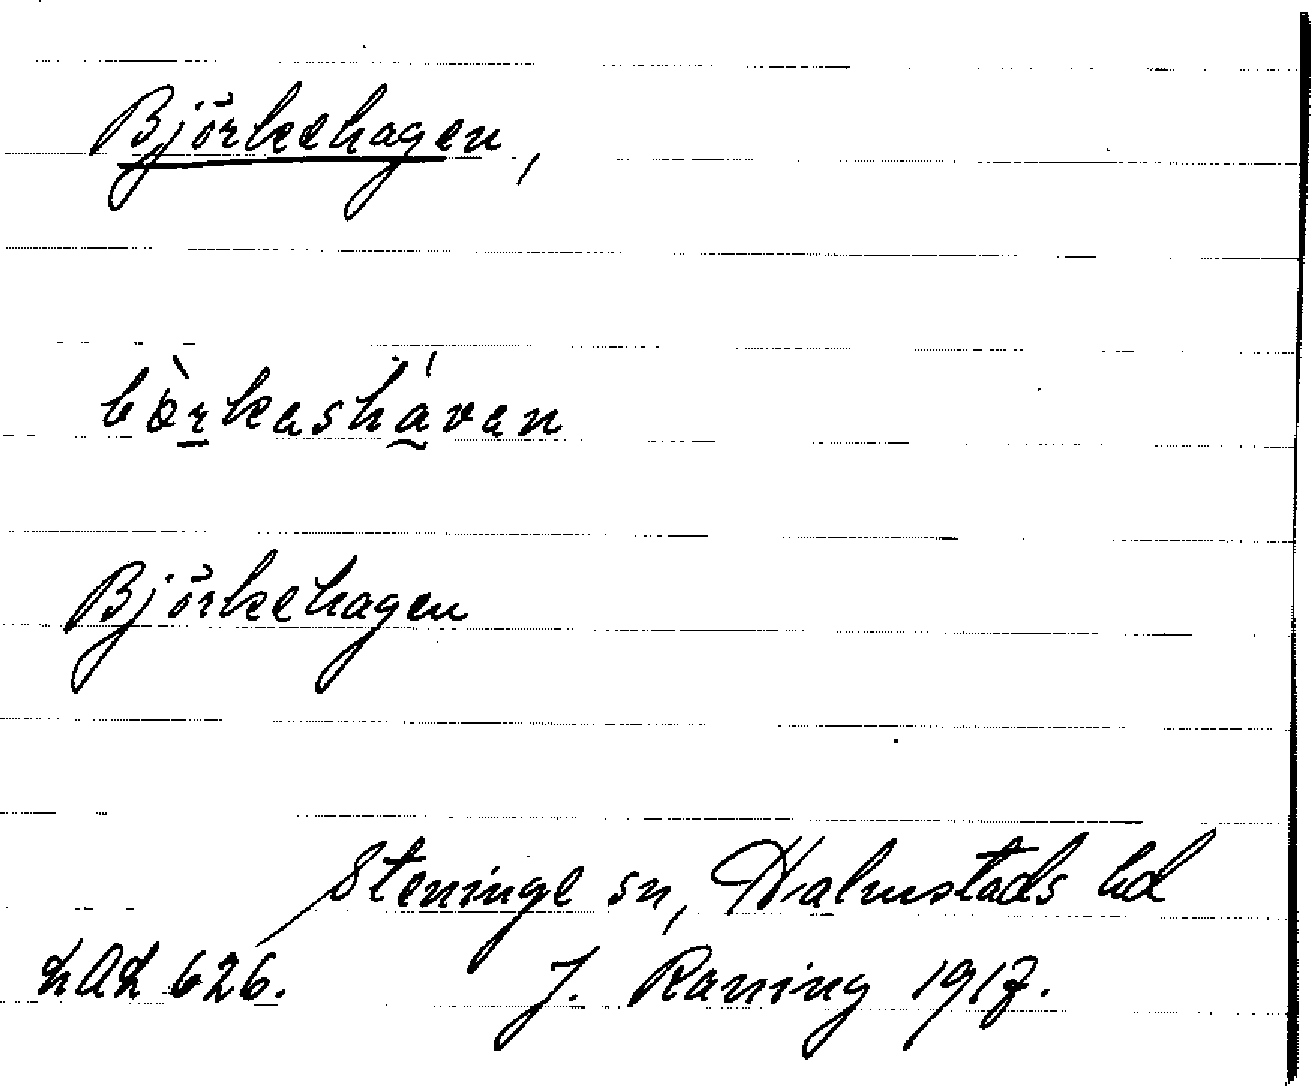 Björkehagen,
bö̀rkashávan
Björkehagen
Steninge sn, Halmstads hd
LAL 626. J. Raning 1917.